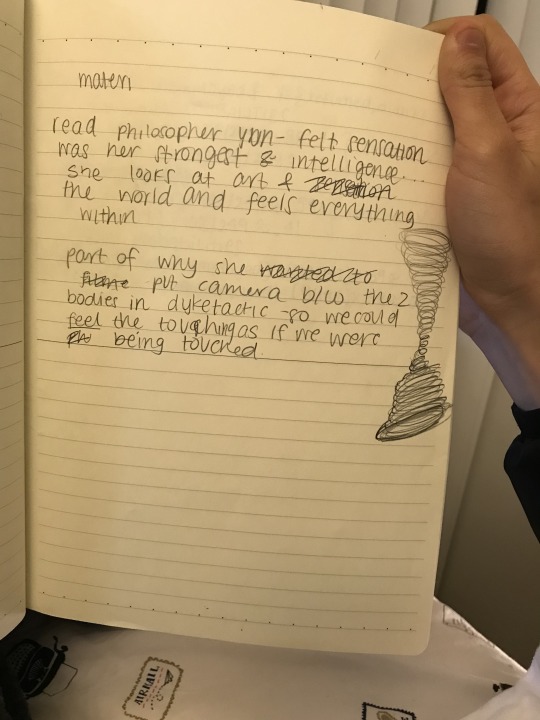 materi
read philosopher - felt sensation
was her strongest & intelligence...
she looks at art &
the world and feels everything
within
part of why she wanted to
put camera b/w the 2
bodies in dyketactic so we could
feel the touching as if we were
being touched.
AIR MAIL